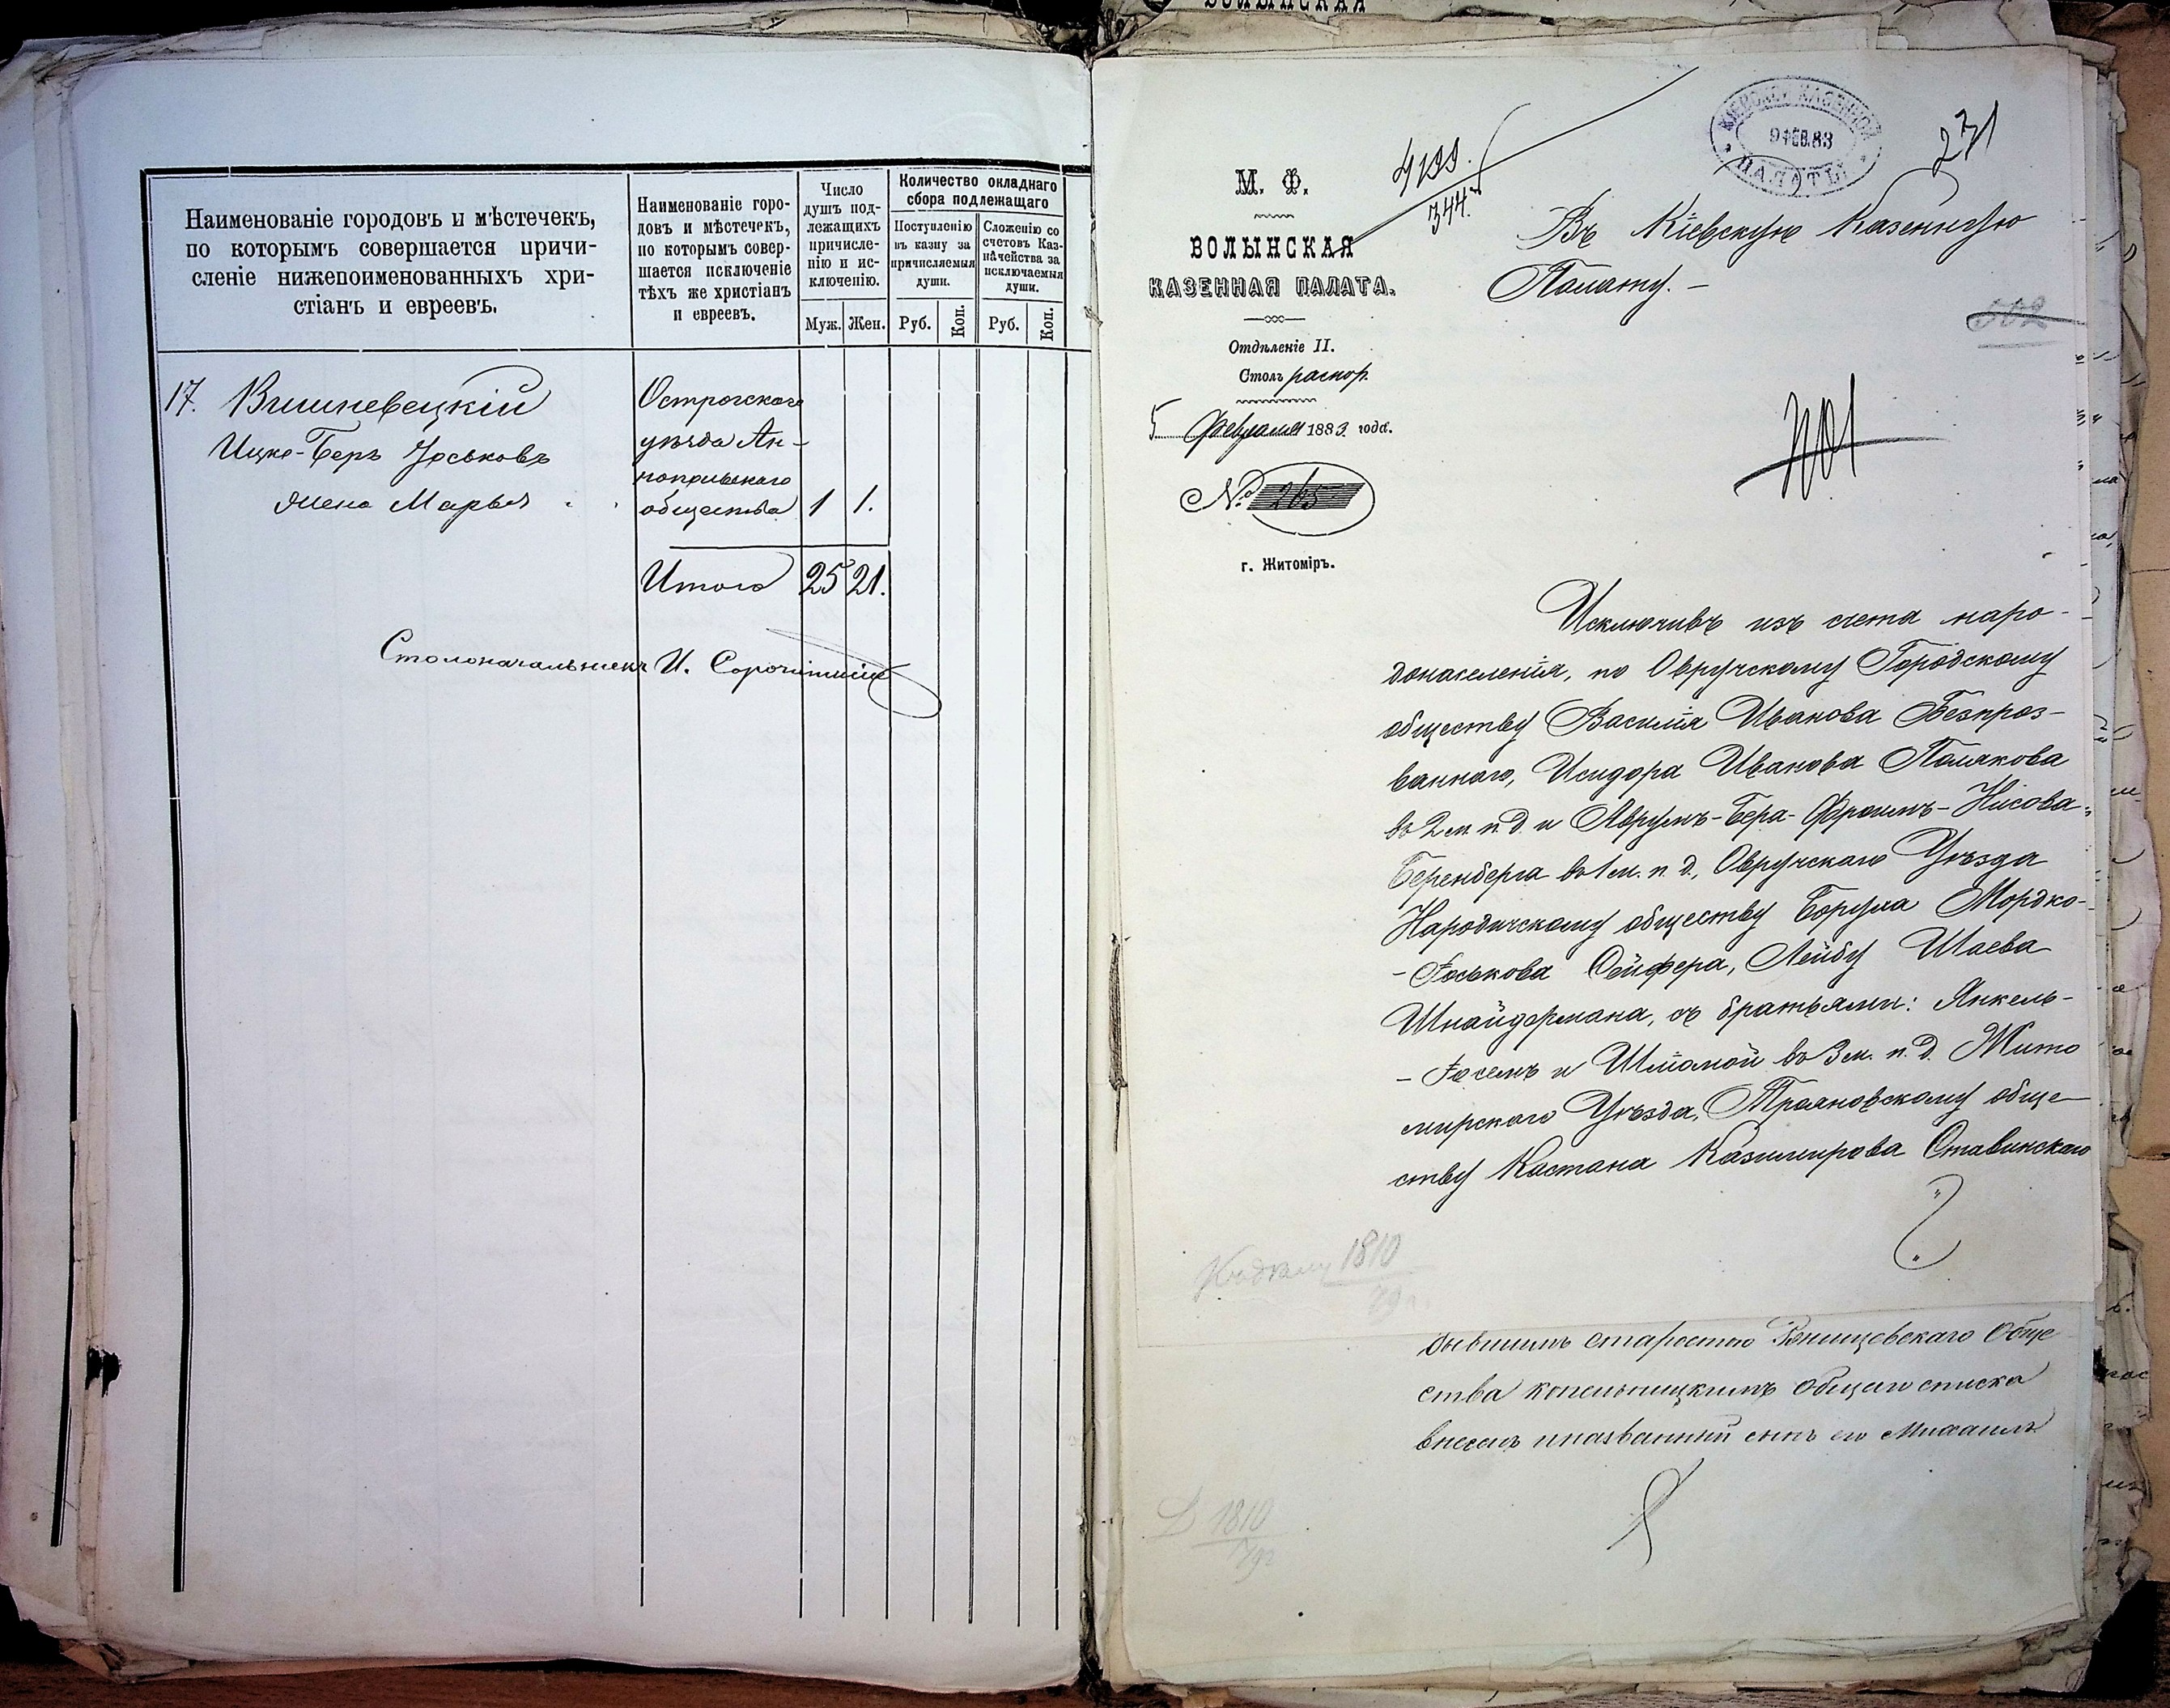 ВОЛЫНСКАЯ
Наименованіе городовъ и мѣстечекъ,
по которымъ совершается причи-
сленіе нижепоименованныхъ хри-
стіанъ и евреевъ.
Наименованіе горо-
довъ и мѣстечекъ,
по которымъ совер-
шается исключеніе
тѣхъ же христіанъ
и евреевъ.
Число
душъ под-
лежащихъ
причисле-
нію и ис-
ключенію.
Муж. Жен.
Количество окладнаго
сбора подлежащаго
Поступленію
въ казну за
причисляемыя
души.
Руб. Коп.
Сложенію со
счетовъ Каз-
начейства за
исключаемыя
души.
Руб. Коп.
17. Вишневецкій Острогскаго
Ицко-Беръ Іоськовъ уѣзда Ан-
нопольскаго
жена Марья общества 1 1.
Итого 25 21.
Столоначальникъ И.
КІЕВСКОЙ КАЗЕННОЙ
9 ФЕВ. 83
ПАЛАТЫ
231
4199.
344.
М. Ф.
ВОЛЫНСКАЯ
КАЗЕННАЯ ПАЛАТА.
Отдѣленіе II.
Столъ распор.
5 Февраля 1883 года.
№ 265
г. Житоміръ.
Въ Кіевскую Казенную
Палату. —
502
Исключивъ изъ счета наро-
донаселенія, по Овручскому Городскому
обществу Василія Иванова Безпроз-
ваннаго, Исидора Иванова Полякова
во 2 м. п. д. и Аврумъ-Бера-Фроимъ-Нисова
Беренберга во 1 м. п. д., Овручскаго Уѣзда
Народичскому обществу Боруха Мордко-
-Іоськова Сейфера, Лейбу Шаева
Шнайдермана, съ братьями: Янкель-
-Іоселъ и Шліомой во 3 м. п. д. Жито
мирскаго Уѣзда, Трояновскому обще-
ству Кастана Казимирова Ставинскаго
1810
бывшимъ старостою Общe
ства общаго списка
внесенъ названный сынъ его Михаилъ
1810